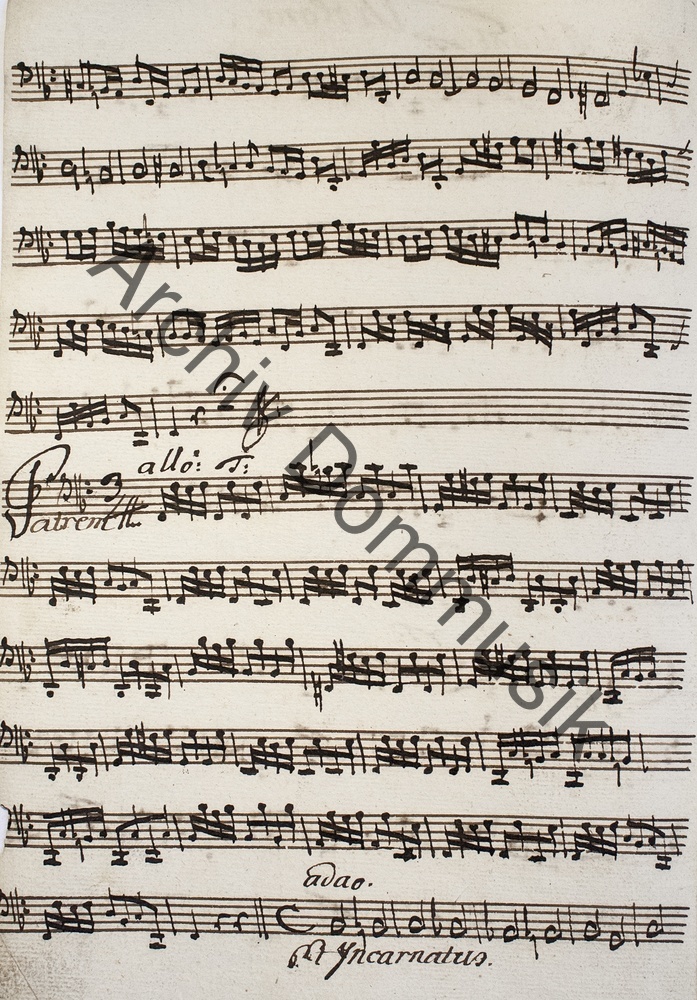 allo: T:
Patrem
Archiv Dommusik
adao.
Et Yncarnatus.